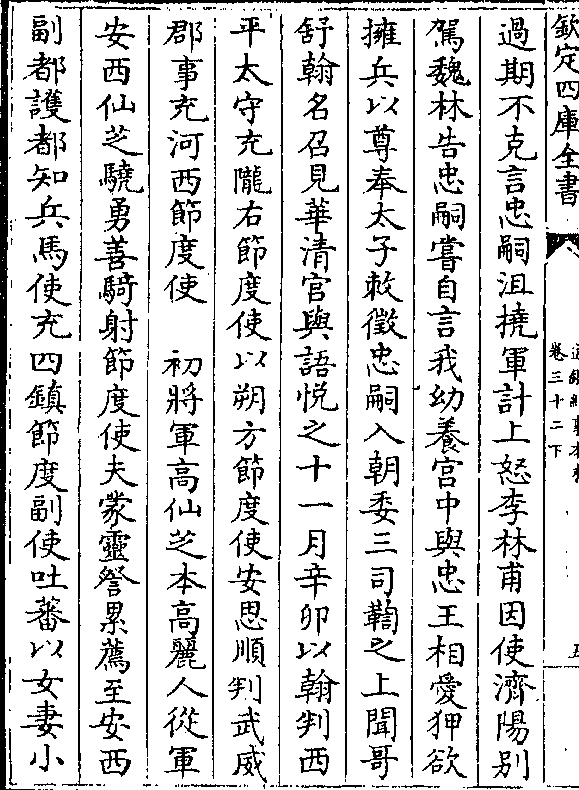 欽定四庫全書
卷三十二下
過期不克言忠嗣沮撓軍計上怒李林甫因使濟陽别
駕魏林告忠嗣嘗自言我幼養宫中與忠王相愛狎欲
擁兵以尊奉太子敕徵忠嗣入朝委三司鞫之上聞哥
舒翰名召見華清宫與語悦之十一月辛卯以翰判西
平太守充隴右節度使以朔方節度使安思順判武威
郡事充河西節度使　初將軍高仙芝本高麗人從軍
安西仙芝驍勇善騎射節度使夫蒙靈詧累薦至安西
副都護都知兵馬使充四鎮節度副使吐蕃以女妻小